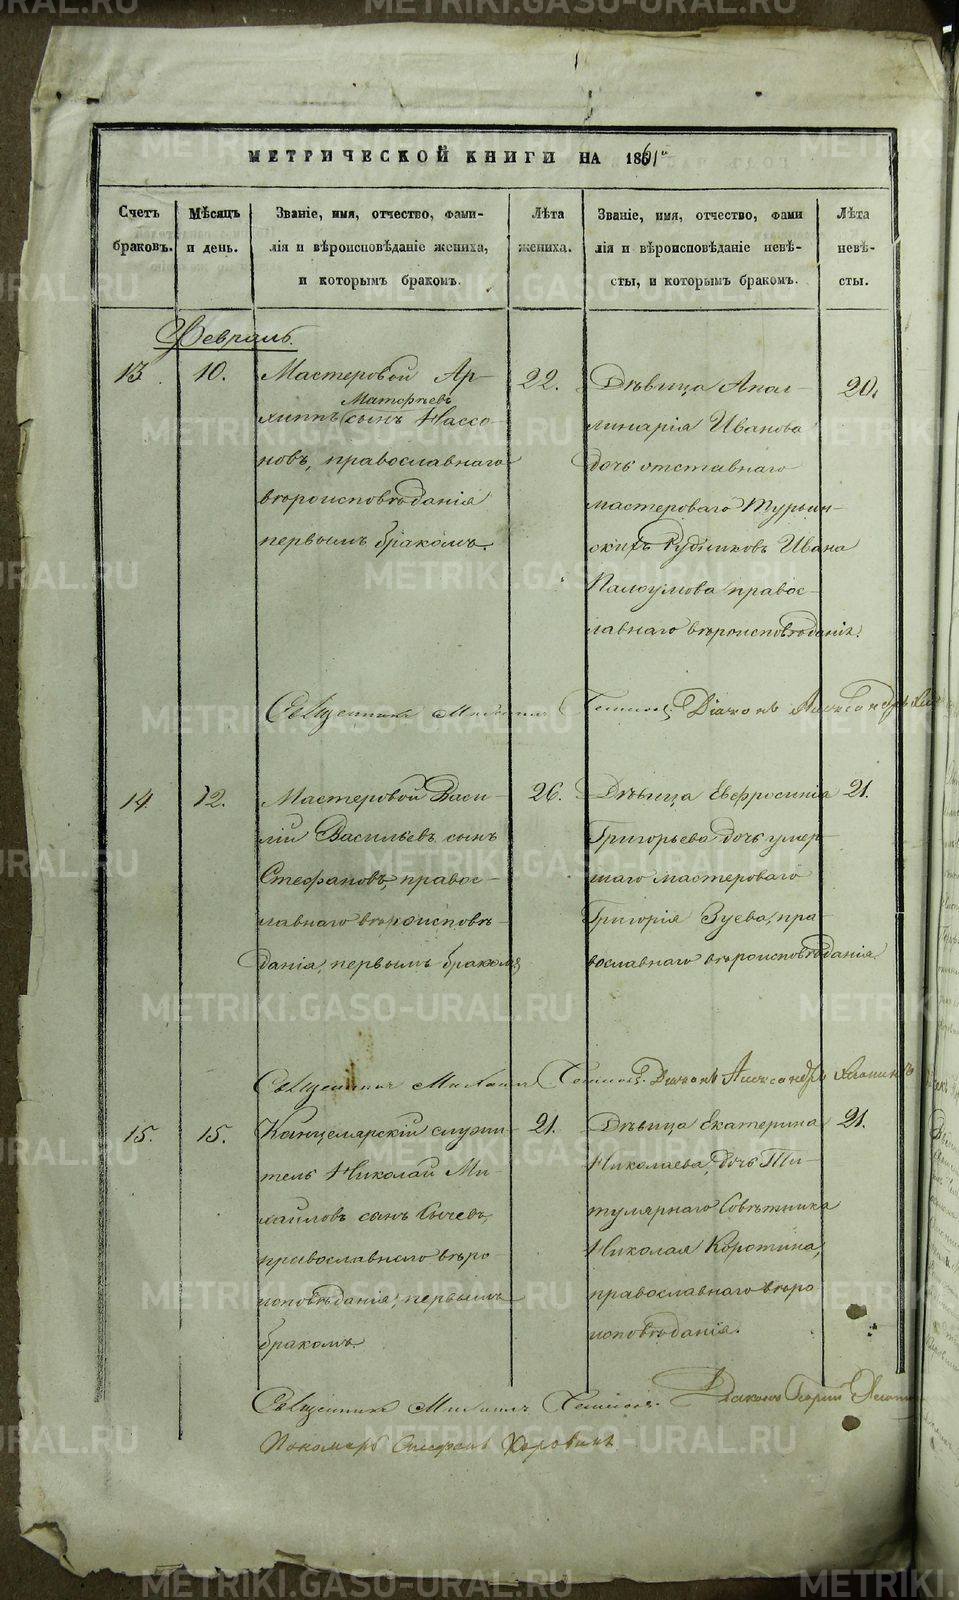 МЕТРИЧЕСКОЙ КНИГИ НА 1861й
Счетъ браковъ.
Мѣсяцъ и день.
Званіе, имя, отчество, фами-
лія и вѣроисповѣданіе жениха,
и которымъ бракомъ.
Лѣта жениха.
Званіе, имя, отчество, фами
лія и вѣроисповѣданіе невѣ-
сты, и которымъ бракомъ.
Лѣта невѣ-
сты.
Февраль.
13.
10.
Мастеровой Ар-
Матфѣевъ
хиппъ сынъ Нассо-
новъ, православнаго
вѣроисповѣданія
первымъ бракомъ.
22.
Дѣвица Апол-
линарія Иванова
дочь отставнаго
мастероваго Турьин-
скихъ Рудниковъ Ивана
правос-
лавнаго вѣроисповѣданія.
20.
Священникъ Михаилъ Діаконъ Александръ
14.
12.
Мастеровой Васи-
лій Васильевъ сынъ
Стефановъ, правос-
лавнаго вѣроисповѣ-
данія, первымъ бракомъ
26.
Дѣвица Евфросинія
Григорьева дочь умер-
шаго мастероваго
Григорія Зуева, пра-
вославнаго вѣроисповѣданія
21.
Священникъ Михаилъ Діаконъ Александръ
15.
15.
Канцелярскій служи-
тель Николай Ми-
хаиловъ сынъ Сычевъ,
православнаго вѣро
исповѣданія, первымъ
бракомъ.
21.
Дѣвица Екатерина
Николаева, дочь Ти-
тулярнаго Совѣтника
Николая Коротина,
православнаго вѣро
исповѣданія.
21.
Священникъ Михаилъ Діаконъ Георгій
Пономарь Стефанъ Коровинъ
METRIKI.GASO-URAL.RU